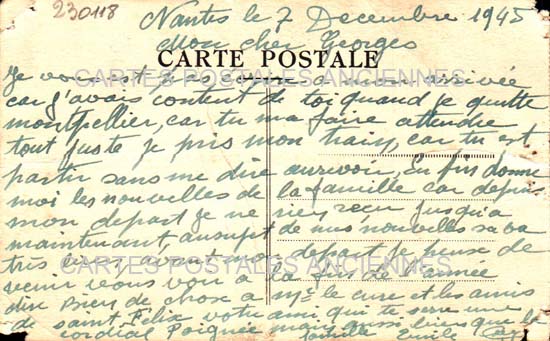 230118
Nantes le 7 Decembre 1945
Mon cher Georges
CARTE POSTALE
CARTES POSTALES ANCIENNES
Je vous arrivée
car j'avais content de toi quand je quitte
montpellier, car tu ma faire attendre
tout juste je pris mon train, car tu est
partir sans me dire aurevoir, Enfin donne
moi les nouvelles de la famille car depuis
mon depart je ne rien reçu jusqu'a
maintenant, au sujet de mes nouvelles sa va
très bien avant mon depart. Je pense de
CARTES POSTALES ANCIENNES
venir vous voir a la fin de l'année
dire bien de chose a Mr le curé et les amis
de saint Félix votre ami qui te serre une
cordial Poignée mais aussi bien que la
famille Emile